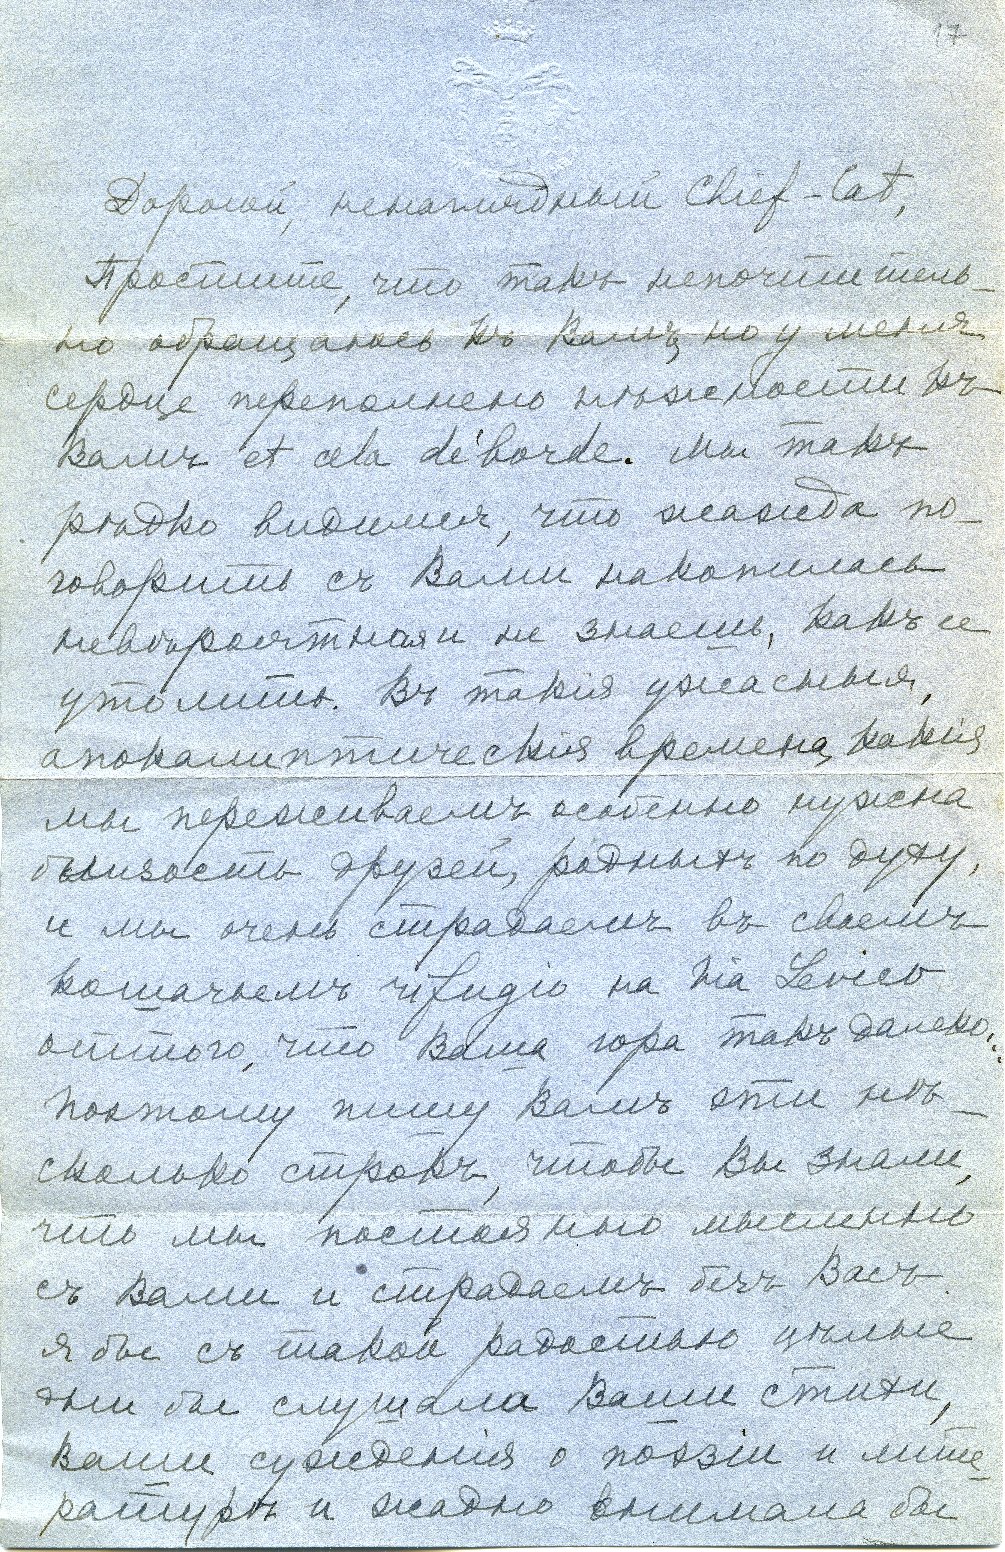 17
Дорогой, ненаглядный Chief-Cat,
Простите, что такъ непочтитель-
но обращаюсь къ Вамъ, но у меня
сердце переполнено нѣжности къ
Вамъ et cela déborde. Мы такъ
рѣдко видимся, что жажда по-
говорить съ Вами накопилась
невѣроятная и не знаешь, какъ ее
утолить. Въ такія ужасныя,
апокалиптическія времена, какія
мы переживаемъ особенно нужна
близость друзей, родныхъ по духу,
и мы очень страдаемъ въ своемъ
кошачьемъ rifugio на Via Levico
оттого, что Ваша гора такъ далеко...
Поэтому пишу Вамъ эти нѣ-
сколько строкъ, чтобы Вы знали,
что мы постоянно мысленно
съ Вами и страдаемъ безъ Васъ
Я бы съ такой радостью цѣлые
дни бы слушала Ваши стихи,
Ваши сужденія о поэзіи и лите-
ратурѣ и жадно внимала бы